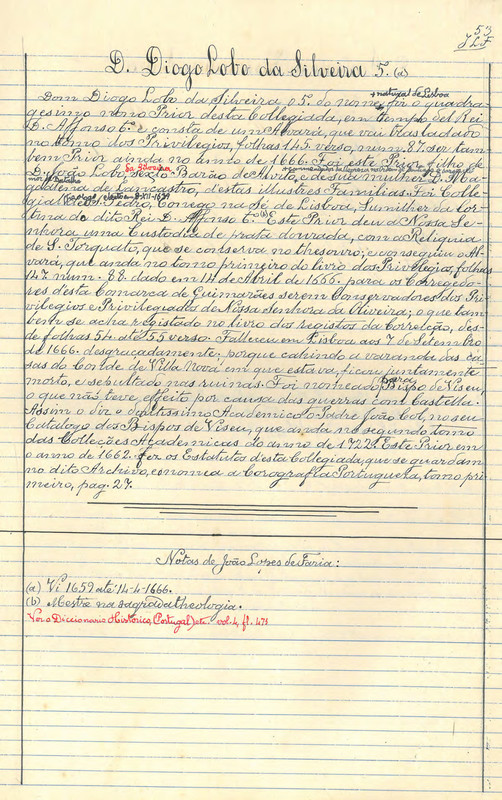 53
J L F
D. Diogo Lobo da Silveira 5. (a)
natural de Lisboa
Dom Diogo Lobo da Silveira o 5.º do nome, foi o quadra-
gesimo nono Prior desta Collegiada, em tempo del Rei
D. Affonso 6.º e consta de um Alvará, que vai trasladado
no tomo dos Privilegios, folhas 145 verso, num. 87. ser tam
bem Prior ainda no anno de 1666. Foi este Prior filho de
da Silveira
D. João Lobo, sexto Barão de Alvito, e de sua mulher D. Ma-
gdalena de Lancastro, destas illustres Familias. Foi Colle-
gial de S. Pedro, Conego na Sé de Lisboa, Sumilher da Cor-
tina do dito Rei D. Affonso 6.º (b) Este Prior deu a Nossa Se-
nhora uma Custodia de prata dourada, com a Reliquia
de S. Torquato, que se conserva no thesouro; e conseguiu o Al-
vará, que anda no tomo primeiro do livro dos Privilegios, folhas
147. num. 88. dado em 14 de Abril de 1666. para os Corregedo-
res desta Comarca de Guimarães serem Conservadores dos Pri-
vilegios e Privilegiados de Nossa Senhora da Oliveira; o que tam-
bem se acha registado no livro dos registos da Correição, des-
de folhas 54. até 55 verso. Falleceu em Lisboa aos 7 de Setembro
de 1666. desgraçadamente; porque cahindo a varanda das ca-
sas do Conde de Villa Nova em que estava, ficou juntamente
morto, e sepultado nas ruinas. Foi nomeado Bispo de Viseu,
o que não teve effeito por causa das guerras com Castella.
Assim o diz o doutissimo Academico o Padre João Col, no seu
Catalogo dos Bispos de Viseu, que anda no segundo tomo
das Collecções Academicas do anno de 1722. Este Prior em
o anno de 1662. fez os Estatutos desta Collegiada, que se guardam
no dito Archivo, e o nomea a Corografia Portugueza, tomo pri
meiro, pag. 27.
Notas de João Lopes de Faria:
(a) Vi 1659 até 14-4-1666.
(b) Mestre na sagrada theologia.
Ver o Diccionario Historico, (Portugal) etc. vol. 4, fl. 478